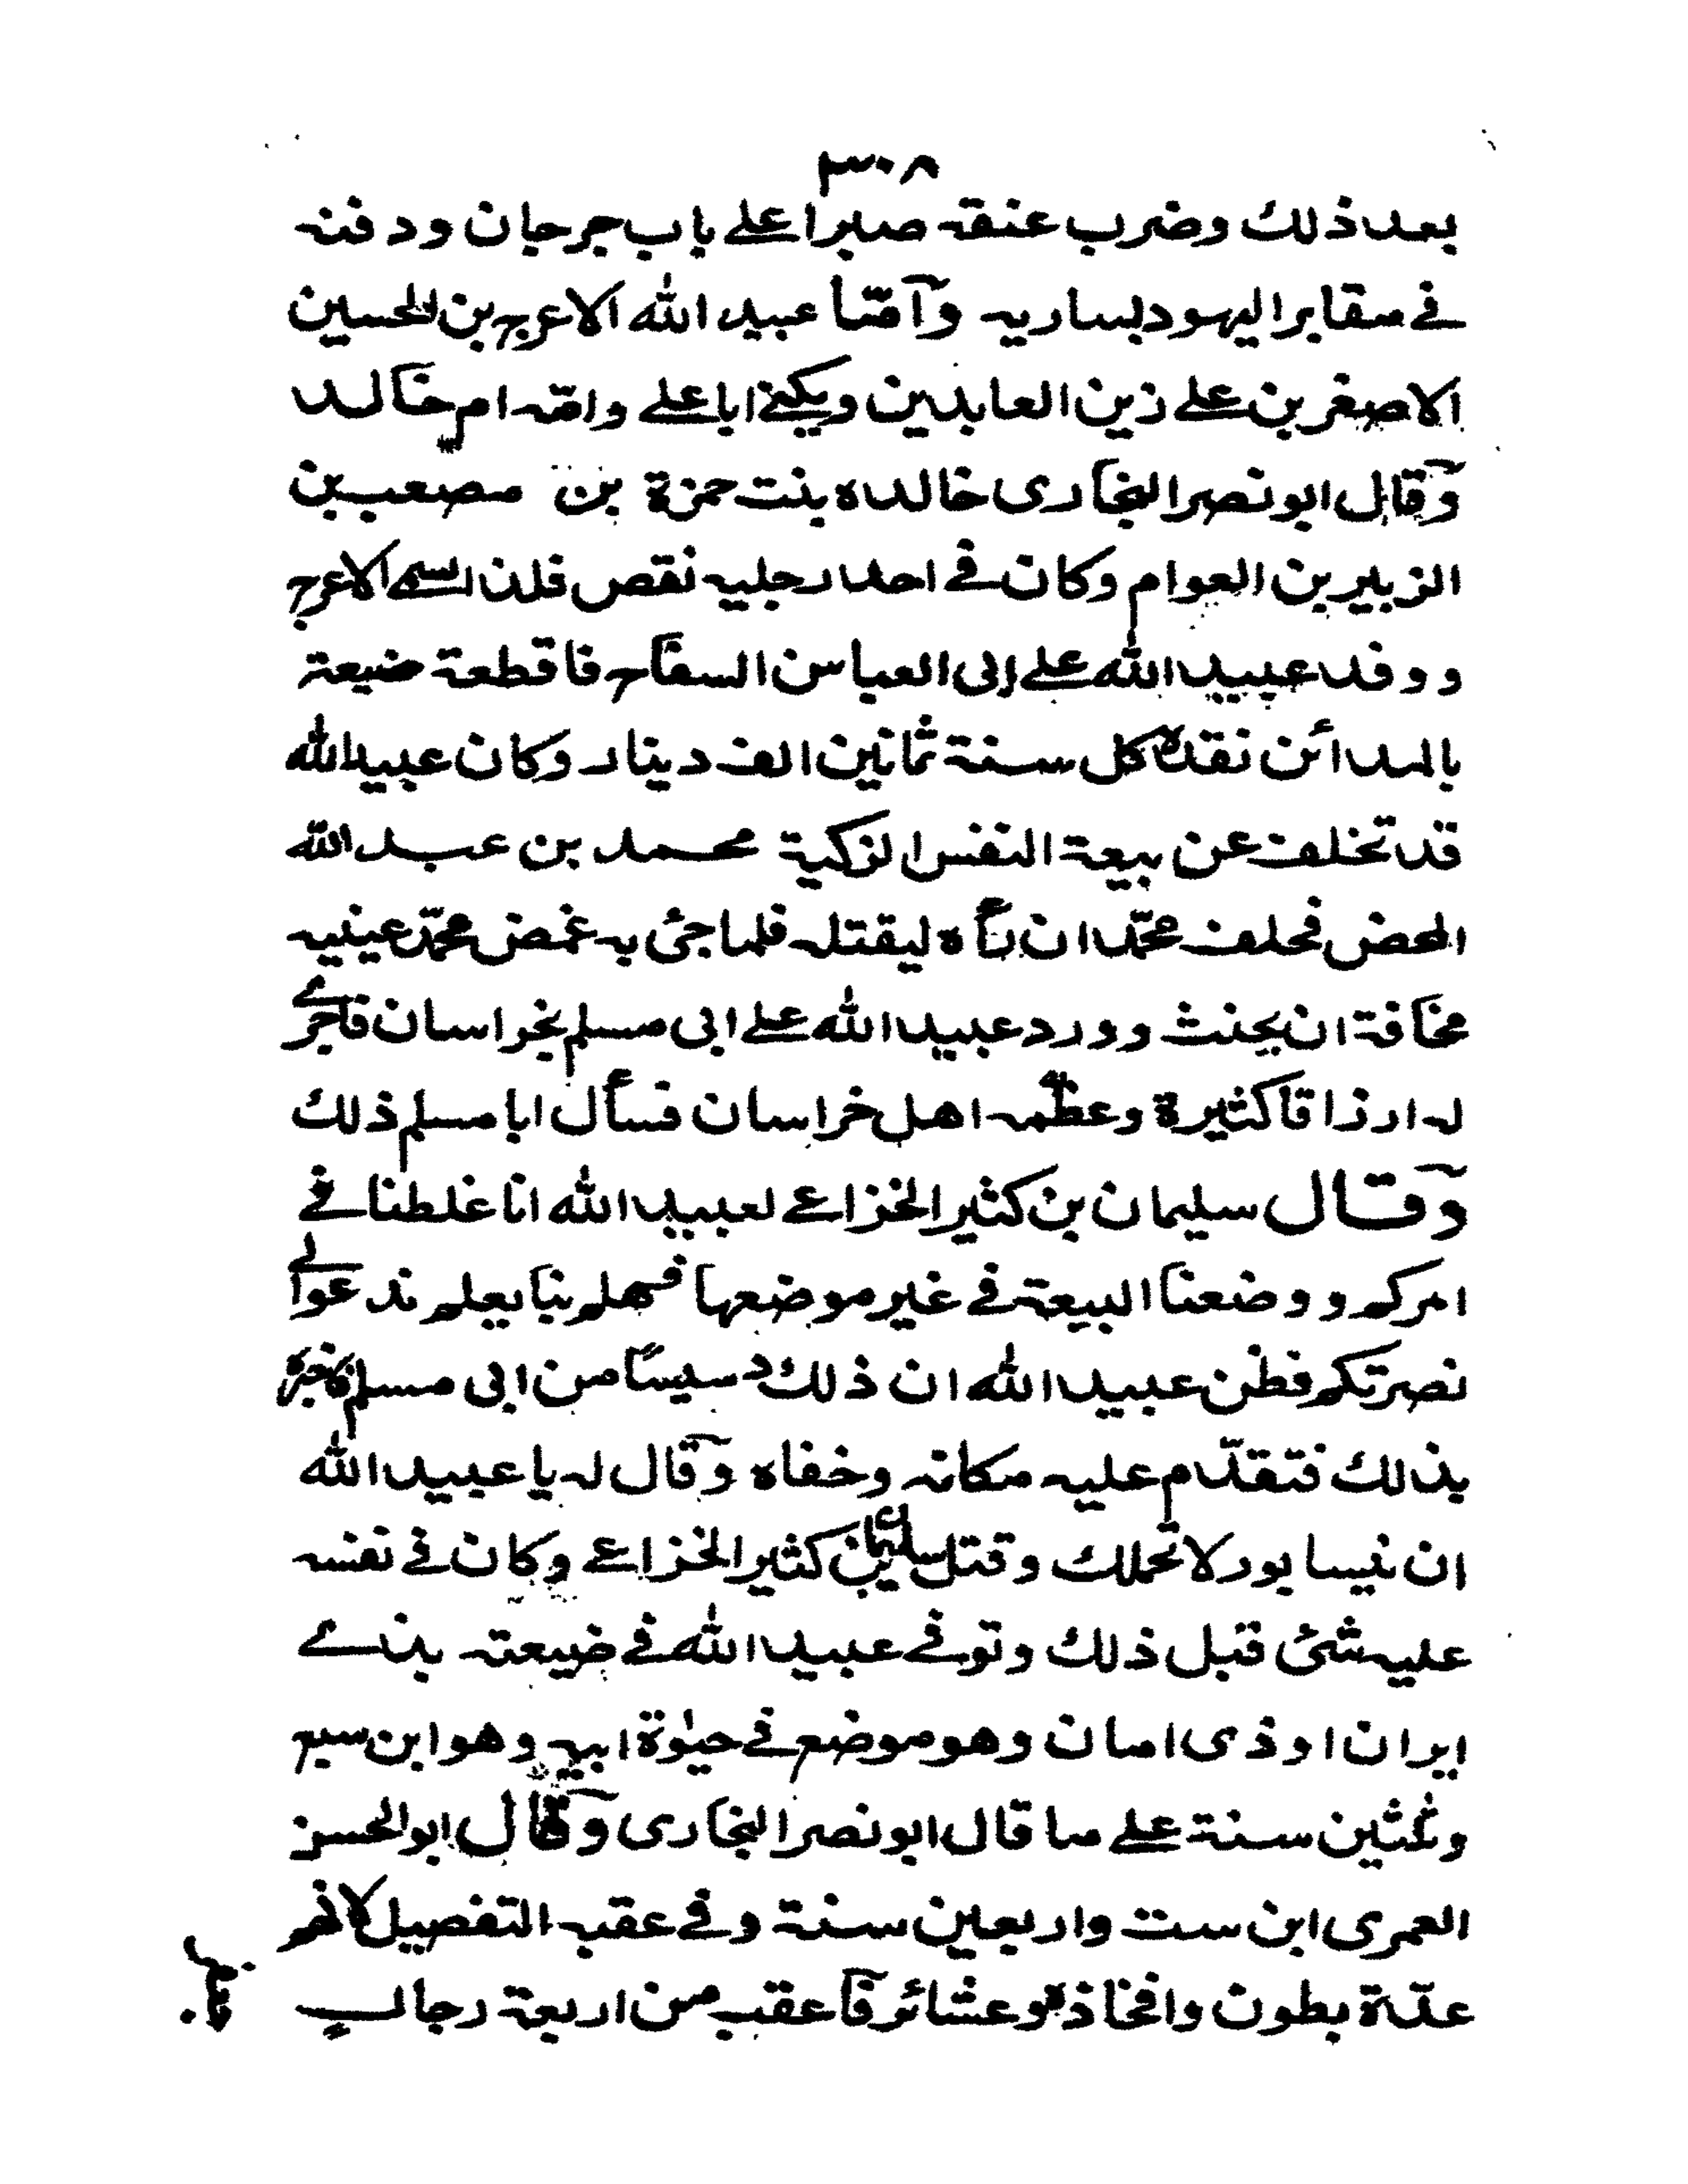 ٣٠٨
بعد ذلك وضرب عنقه صبرا على باب جرجان ودفنه
في مقابر اليهود بساريه وآمّا عبيد الله الاعرج بن الحسين
الاصغر بن على زين العابدين ويكنى ابا على وامّه ام خالد
وقال ابو نصر البخارى خالده بنت حمزة بن مصعب بن
الزبير بن العوام وكان في احدا رجليه نقص فلذا سمى الاعرج
ووفد عبيد الله على ابى العباس السفاح فاقطعة ضيعة
بالمدائن نقده كل سنة ثمانين الف دينار وكان عبيد الله
قد تخلف عن بيعة النفس الزكية محمد بن عبد الله
المحض فحلف محمّد ان رأه ليقتله فلما جئ به غمض محمّد عينيه
مخافة ان يحنث وورد عبيد الله على ابى مسلم بخراسان فاجرى
له ارزاقا كثيرة وعظّمه اهل خراسان فسأل ابا مسلم ذلك
وقال سليمان بن كثير الخزاعى لعبيد الله انا غلطنا في
امركم ووضعنا البيعة في غير موضعها فهلم بنا يعلم ندعوا الى
نصرتكم فظن عبيد الله ان ذلك دسيسا من ابى مسلم فاخبره
بذلك فتقدّم عليه مكانه وخفاه وقال له يا عبيد الله
ان نيسابور لا تحملك وقتل سليمان بن كثير الخزاعى وكان في نفسه
عليه شئ قبل ذلك وتوفى عبيد الله في ضيعته بذى
ايران او ذى امان وهو موضع في حيوة ابيه وهو ابن سبع
وثلثين سنة على ما قال ابو نصر البخارى وقال ابو الحسن
العمرى ابن ست واربعين سنة وفي عقبه التفصيل لانهم
عدّة بطون وافخاذ وعشائر فاعقب من اربعة رجال